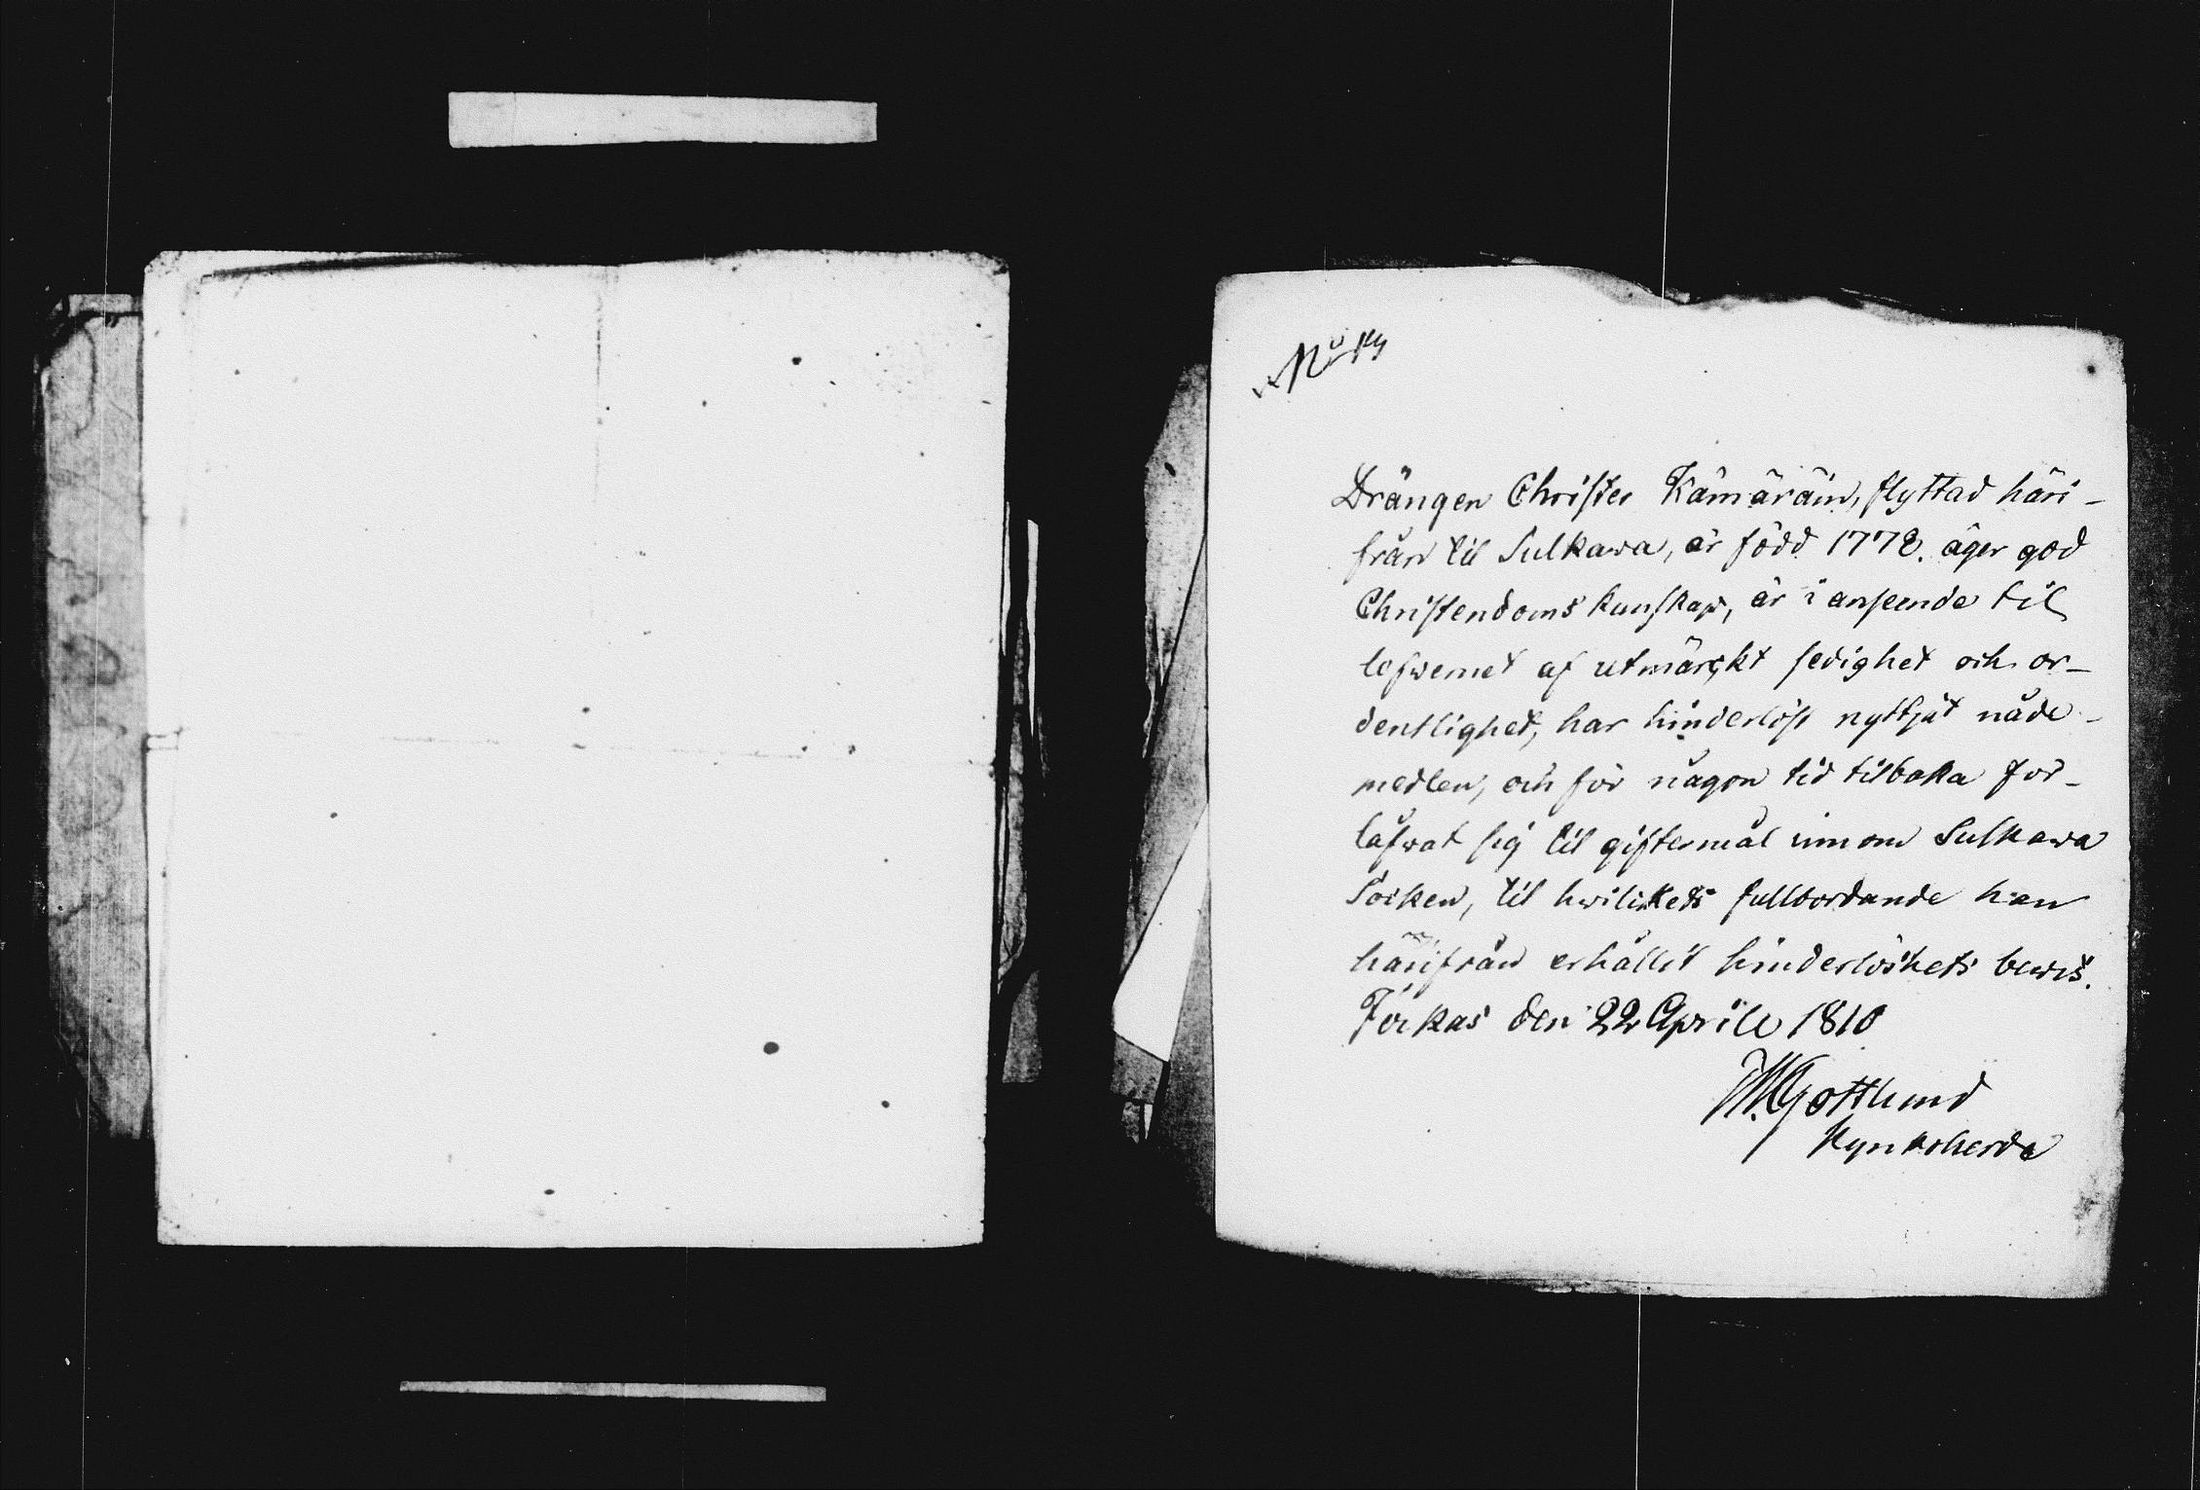 Drängen Christer Kämäräin, flyttad häri-
från til Sulkawa, är född 1778. äger god
Christendoms kunskap, är i anseende til
lefwernet af utmärkt sedighet och or-
dentlighet, har hinderlöst nyttjat nåde-
medlen, och för någon tid tilbaka för-
låfwat sig til giftermål innom Sulkawa
Socken, til hwilkets fullbordande han
härifrån erhållit hinderlöshets bewis.
Jockas den 22 Aprill 1810
Gottlund
Kyrkoherde